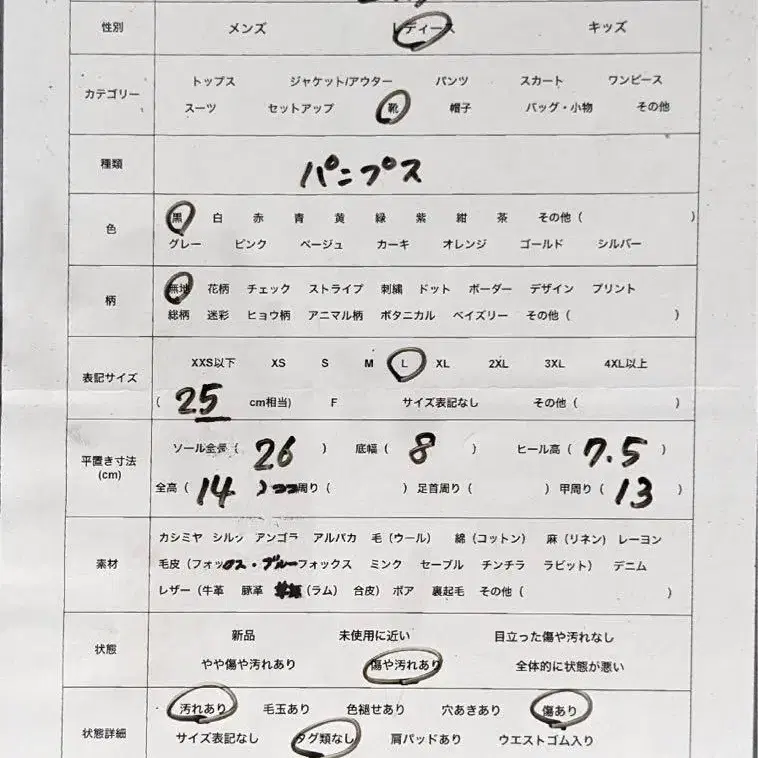 性別 メンズ レディース キッズ
カテゴリー
トップス ジャケット/アウター パンツ スカート ワンピース
スーツ セットアップ 靴 帽子 バッグ・小物 その他
種類 パンプス
色
黒 白 赤 青 黄 緑 紫 紺 茶 その他 ( )
グレー ピンク ベージュ カーキ オレンジ ゴールド シルバー
柄
無地 花柄 チェック ストライプ 刺繍 ドット ボーダー デザイン プリント
総柄 迷彩 ヒョウ柄 アニマル柄 ボタニカル ペイズリー その他 ( )
表記サイズ
XXS以下 XS S M L XL 2XL 3XL 4XL以上
( 25 cm相当) F サイズ表記なし その他 ( )
平置き寸法
(cm)
ソール全長 ( 26 ) 底幅 ( 8 ) ヒール高 ( 7.5 )
全高 ( 14 ) 周り ( ) 足首周り ( ) 甲周り ( 13 )
素材
カシミヤ シルク アンゴラ アルパカ 毛 (ウール) 綿 (コットン) 麻 (リネン) レーヨン
毛皮 (フォックス・ブルーフォックス ミンク セーブル チンチラ ラビット) デニム
レザー (牛革 豚革 (ラム) 合皮) ボア 裏起毛 その他 ( )
状態
新品 未使用に近い 目立った傷や汚れなし
やや傷や汚れあり 傷や汚れあり 全体的に状態が悪い
状態詳細
汚れあり 毛玉あり 色褪せあり 穴あきあり 傷あり
サイズ表記なし タグ類なし 肩パッドあり ウエストゴム入り